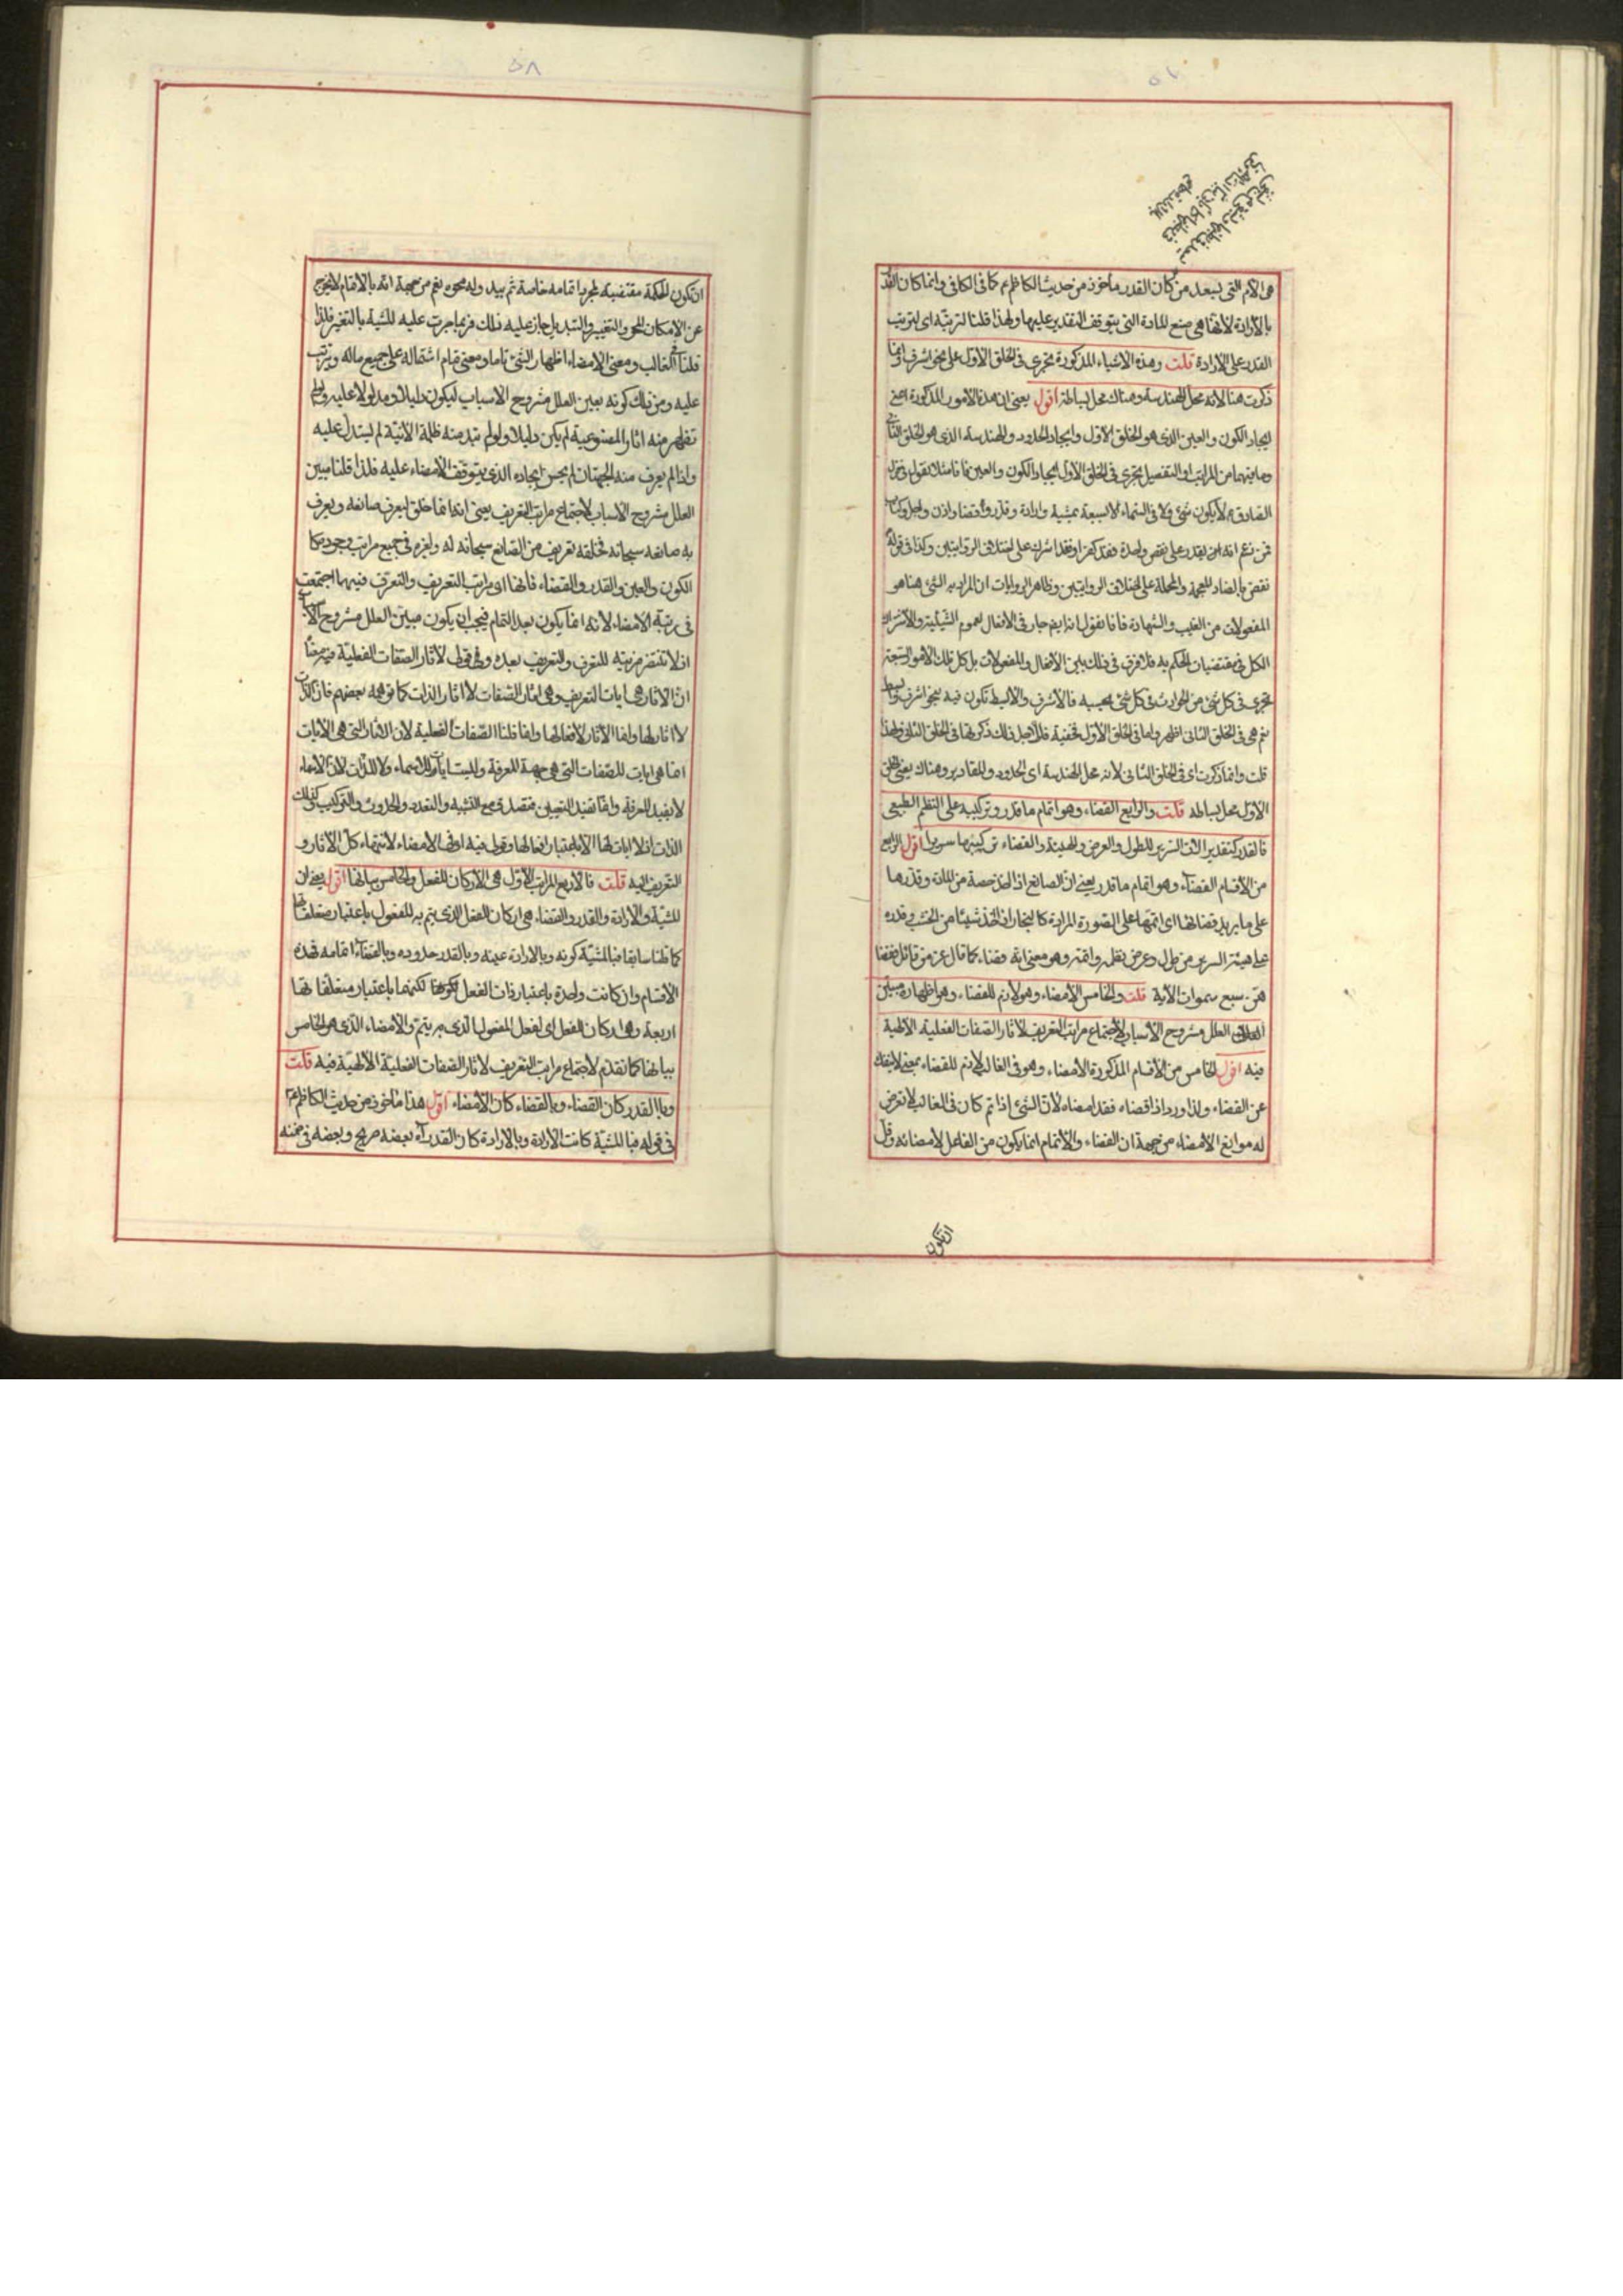 ٥٧
هي الأم التي يسعد من كان القدر مأخوذ من حديث الكاظم ع كما في الكافي وانما كان القدر
بالأرادة لأنها هي صنع المادة التي يتوقف التقدير عليها ولهذا قلنا لترتبه اي لترتب
القدر على الارادة قلت وهذه الاشياء المذكورة تجري في الخلق الاول على نحو اشرف وانما
ذكرت هنا لانه محل الهندسة وهناك محل بساطة اقول يعني ان هذه الأمور المذكورة اعني
ايجاد الكون والعين الذي هو الخلق الأول وايجاد الحدود والهندسة الذي هو الخلق الثاني
وما بينهما من المراتب او التفصيل يجري في الخلق الأول ايجاد الكون والعين
الصادق ع لا يكون شيء في الأرض ولا في السماء الا بسبعة بمشية وارادة وقدر وقضاء واذن واجل وكتاب
فمن زعم انه يقدر على نقص واحدة فقد كفر او فقد اشرك على اختلاف الروايتين وكذا في قوله
نقص بالصاد المهملة والمعجمة على اختلاف الروايتين وظاهر الروايات ان المراد به الشيء هنا هو
المفعولات من الغيب والشهادة فانا نقول انه ايضا جار في الافعال لعموم الشيئية والاشتراك
الكل في مقتضيات الحكم به فلا فرق في ذلك بين الأفعال والمفعولات بل كل تلك الأمور السبعة
تجري في كل شيء من الحوادث في كل شيء بحسبه فالأشرف والأبسط تكون فيه بنحو اشرف وابسط
نعم هي في الخلق الثاني اظهر واما في الخلق الأول فخفية فلاجل ذلك ذكرتها في الخلق الثاني ولهذا
قلت وانما ذكرت اي في الخلق الثاني لأنه محل الهندسة اي الحدود والمقادير وهناك يعني الخلق
الأول محل بساطة قلت والرابع القضاء وهو اتمام ما قدر وتركيبه على النظم الطبيعي
فالقدر كتقدير آلات السرير للطول والعرض والهيئة والقضاء تركيبها سريرا اقول الرابع
من الأقسام القضاء وهو اتمام ما قدر يعني ان الصانع اذا اخذ حصة من المادة وقدرها
على ما يريد قضاها اي اتمها على الصورة المرادة كالنجار اذا اخذ شيئا من الخشب وقدره
على هيئة السرير من طول وعرض واتمه وهو معنى انه قضاه كما قال عز من قائل فقضا
هن سبع سموات الآية قلت والخامس الأمضاء وهو لازم للقضاء وهو اظهاره مبين
العلل مشروح الأسباب لأجتماع مراتب التعريف لأثار الصفات الفعلية الالهية
فيه اقول الخامس من الأقسام المذكورة الأمضاء وهو في الغالب لازم للقضاء بمعنى لا ينفك
عن القضاء ولذا ورد اذا قضاه فقد امضاه لأن الشيء اذا تم كان في الغالب لا تعرض
له موانع الأمضاء من جهة ان القضاء والأتمام انما يكون من الفاعل لامضائه وقل
ان تكون
٥٨
ان تكون الحكمة مقتضية لمجرد اتمامه خاصة ثم يبد وله محوه نعم من جهة انه بالاتمام لا يخرج
عن الامكان المحو والتغيير والتبديل جاز عليه ذلك فربما جرت عليه المشية بالتغير فلذا
قلنا في الغالب ومعنى الامضاء اظهار الشيء تاما ومعنى تمام اشتماله على جميع ماله ويترتب
عليه ومن ذلك كونه مبين العلل مشروح الاسباب ليكون دليلا ومدلولا عليه ولو لم
تظهر منه اثار المصنوعية لم يكن دليلا ولو لم تبد منه ظلمة الأنية لم يستدل عليه
واذا لم يعرف منه الجهتان لم يحسن ايجاده الذي يتوقف الأمضاء عليه فلذا قلنا مبين
العلل مشروح الأسباب لأجتماع مراتب التعريف يعني انه انما خلق ليعرف صانعه ويعرف
به صانعه سبحانه فخلقه تعريف من الصانع سبحانه له ولغيره في جميع مراتب وجوده كما
الكون والعين والقدر والقضاء فأنها اي مراتب التعريف والتعرف فيهما اجتمعت
في رتبة الامضاء لأنه انما يكون بعد التمام فيجب ان يكون مبين العلل مشروح الأسباب
اذ لا تنتظر مرتبة للتعرف والتعريف بعده وفي قولي لأثار الصفات الفعلية فيه معنا
ان الآثار هي ايات التعريف وهي اثار الصفات لا اثار الذات كما توهمه بعضهم فان الذات
لا اثار لها وانما الآثار لأفعالها وانما قلنا الصفات الفعلية لأن الآثار التي هي الآيات
انما هي ايات للصفات التي هي جهة المعرفة وليست ايات للاسماء ولا للذات لأن الأسماء
لا يفيد المعرفة وانما تفيد التعيين فتصدق مع التشبيه والتعدد والحدوث والتركيب وكذلك
الذات اذ لا ايات لها الا باعتبار افعالها وقولي فيه اي في الأمضاء لانتهاء كل الآثار و
التعريف اليه قلت فالاربع المراتب الأول هي الأركان للفعل والخامس بيانها اقول يعني ان
المشية والأرادة والقدر والقضاء هي اركان الفعل الذي يتم به المفعول باعتبار متعلقاتها
كما قلنا سابقا فبالمشية كونه وبالارادة عينه وبالقدر حدوده وبالقضاء اتمامه فهذه
الأقسام وان كانت واحدة باعتبار ذات الفعل لكونها لكنها باعتبار متعلقاتها
اربعة وهي اركان الفعل اي لفعل المفعول الذي به يتم والأمضاء الذي هو الخامس
بيانها كما تقدم لأجتماع مراتب التعريف لأثار الصفات الفعلية الألهية فيه قلت
وبالقدر كان القضاء وبالقضاء كان الأمضاء اقول هذا مأخوذ من حديث الكاظم ع
في قوله فبالمشية كانت الأرادة وبالارادة كان القدر آه بعضه صريح وبعضه في ضمنه